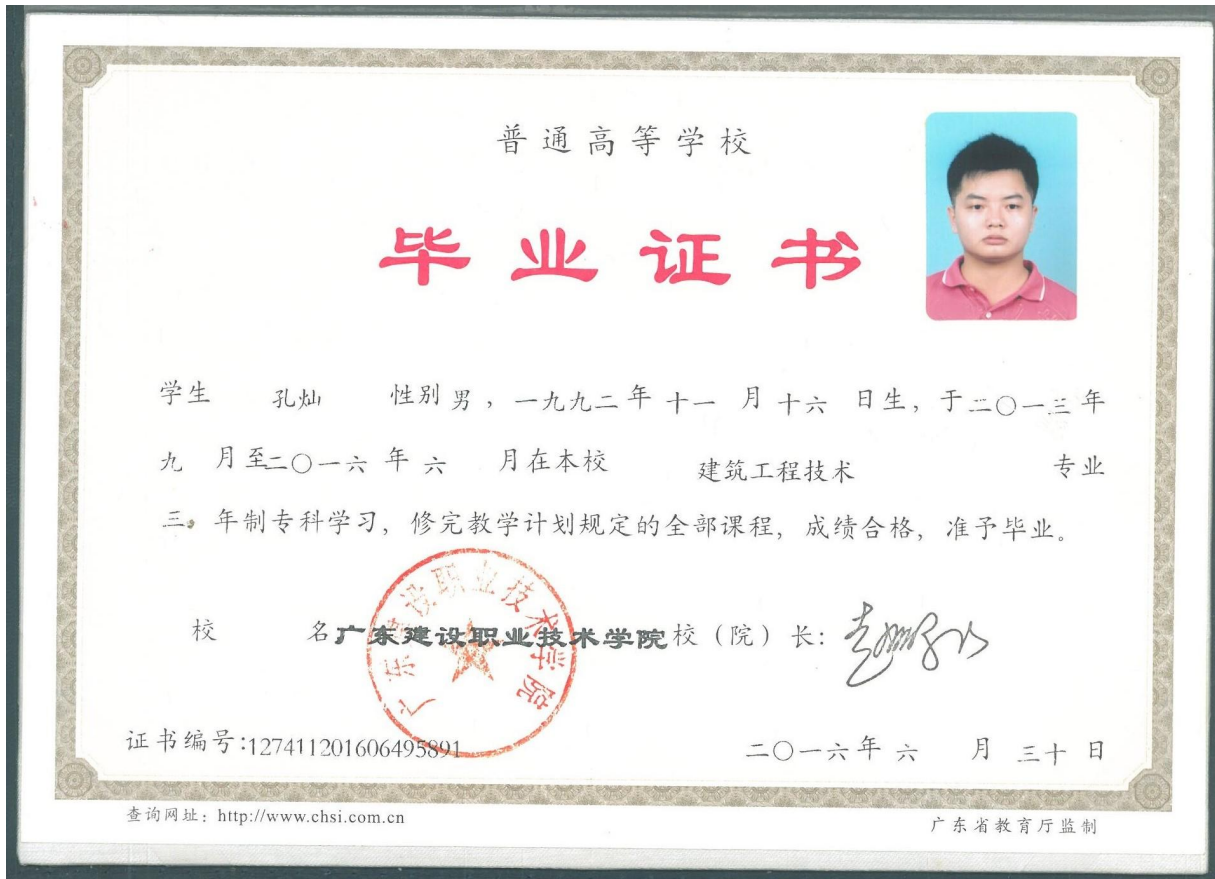 普通高等学校
毕业证书
学生 孔灿 性别 男，一九九二年 十一 月 十六 日生，于二〇一三年
九 月至二〇一六 年 六 月在本校 建筑工程技术 专业
三 年制专科学习，修完教学计划规定的全部课程，成绩合格，准予毕业。
校 名 广东建设职业技术学院 校（院）长：
广东建设职业技术学院
证书编号：127411201606495891 二〇一六年 六 月 三十 日
查询网址：http://www.chsi.com.cn 广东省教育厅监制